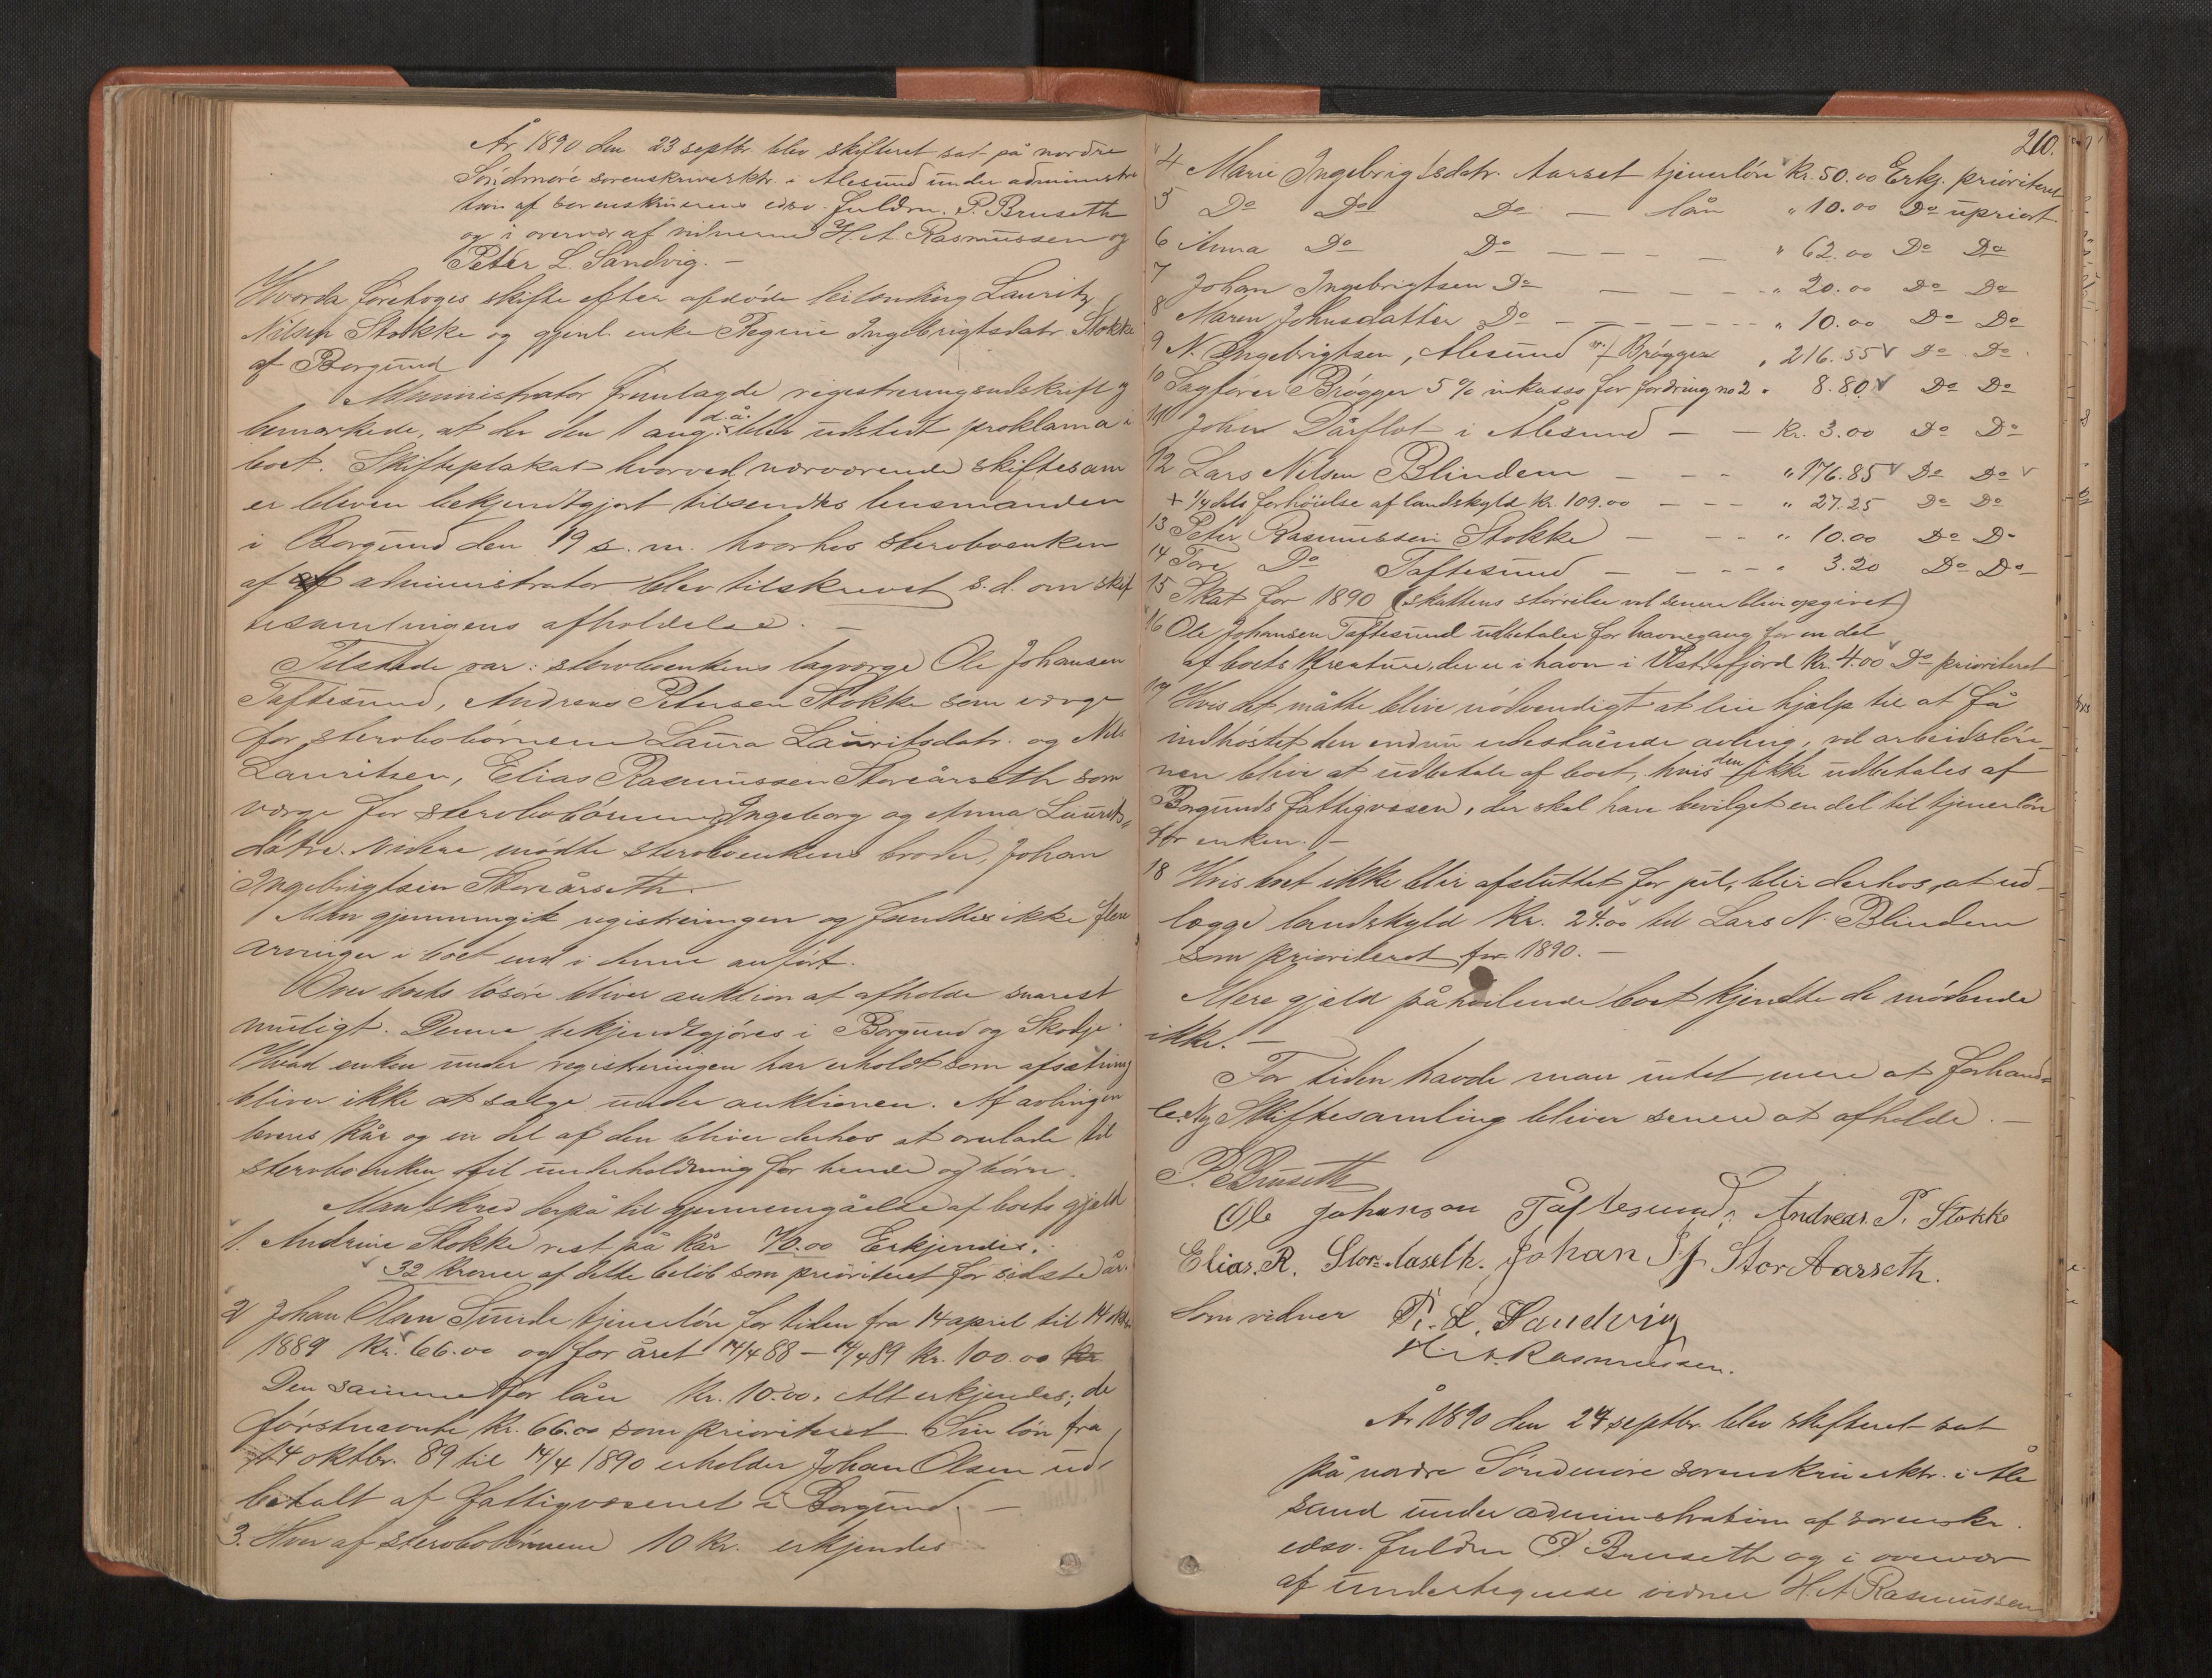 År 1890 den 23 septbr. blev skifteret sat på nordre
Søndmøre sorenskriverktr. i Alesund under administra
tion af sorenskriverens edsv. fuldm. P. Bruseth
og i overvær af vidnerne H. A. Rasmussen og
Peter L. Sandvig. —
Hvorda foretoges skifte efter afdøde leilending Lauritz
Nilsen Stokke og gjenl. enke Regine Ingebrigtsdatr. Stokke
af Borgund
Administrator fremlagde registreringsudskrift og
bemærkede, at der den 1 aug. d. å. blev udstedt proklama i
boet. Skifteplakat hvorved nærværende skiftesam
er bleven bekjendtgjort tilsendtes lensmanden
i Borgund den 19 s. m. hvorhos sterboenken
af administrator blev tilskrevet s. d. om skif
tesamlingens afholdelse. —
Tilstede var: sterboenkens lagværge Ole Johansen
Taftesund, Andreas Petersen Stokke som værge
for sterbobørnene Laura Lauritsdatr. og Nils
Lauritsen, Elias Rasmussen Storeårseth som
værge for sterbobørnene Ingeborg og Anna Laurits-
døtre. Videre mødte sterboenkens broder, Johan
Ingebrigtsen Storeårseth.
Man gjennemgik registreringen og fandtes ikke flere
arvinger i boet end i denne anført.
Over boets løsøre bliver auktion at afholde snarest
muligt. Denne bekjendtgjøres i Borgund og Skodje.
Hvad enken under registreringen har erholdt som afsætning
bliver ikke at sælge under auktionen. Af avlingen
leveres kår og en del af den bliver derhos at overlade til
sterboenken til underholdning for hende og børn.
Man skred derpå til gjennemgåelse af boets gjæld
1. Andrine Stokke rest på kår 70.00 Erkjendes.
32 kroner af dette beløb som prioriteret for sidste år.
2 Johan Olsen Sunde tjenerløn for tiden fra 14 april til 14 oktbr
1889 Kr. 66.00 og for året 14/4 88 — 14/4 89 Kr. 100.00
Den samme for lån Kr. 10.00. Alt erkjendes; de
førstnævnte Kr. 66.00 som prioriteret. Sin løn fra
14 oktbr. 89 til 14/4 1890 erholder Johan Olsen ud-
betalt af fattigvæsenet i Borgund. —
3. Hver af sterbobørnene 10 kr. erkjendes
210.
4 Marie Ingebrigtsdatr. Aarset tjenerløn Kr. 50.00 Erkj. prioriteret
5 Do Do Do — lån " 10.00 Do upriort.
6 Anna Do Do — — — — " 62.00 Do Do
7 Johan Ingebrigtsen Do — — — — " 20.00 Do Do
8 Maren Johnsdatter Do — — — — — " 10.00 Do Do
9 N. Ingebrigtsen, Alesund v./ Brøgger " 216.55 Do Do
10 Sagfører Brøgger 5 % inkasso for fordring no 2 " 8.80 Do Do
11 John Dårflot i Ålesund — — Kr. 3.00 Do Do
12 Lars Nilsen Blindem — — — " 176.85 Do Do
+ 1/4 dels forhøielse af landskyld Kr. 109.00 — — — " 27.25 Do Do
13 Peter Rasmussen Stokke — — — " 10.00 Do Do
14 Tore Do Taftesund — — — — " 3.20 Do Do
15 Skat for 1890 (skattens størrelse vil senere blive opgivet)
16 Ole Johansen Taftesund udbetaler for havnegang for en del
af boets kreaturer, der er i havn i Vestrefjord Kr. 4.00 Do prioriteret
17 Hvis det måtte blive nødvendigt at leie hjælp til at få
indhøstet den endnu udestående avling, vil arbeidsløn-
nen blive at udbetale af boet, hvis den ikke udbetales af
Borgunds fattigvæsen, der skal have bevilget en del til tjenerløn
for enken. —
18 Hvis boet ikke blir afsluttet før jul, blir derhos at ud-
lægge landskyld Kr. 24.00 til Lars N. Blindem
som prioriteret for 1890. —
Mere gjæld påhvilende boet kjendte de mødende
ikke. —
For tiden havde man intet mere at forhand-
le. Ny Skiftesamling bliver senere at afholde. —
P. Bruseth
Ole Johanson Tåftesund, Andreas. P. Stokke
Elias. R. Stor-Aaseth. Johan If StorAarseth.
Som vidner P. L. Sandvig
H. A. Rasmussen.
År 1890 den 24 septbr. blev skifteret sat
på nordre Søndmøre sorenskriverktr. i Åle
sund under administration af sorenskr.
edsv. fuldm P. Bruseth og i overvær
af undertegnede vidner H. A Rasmussen